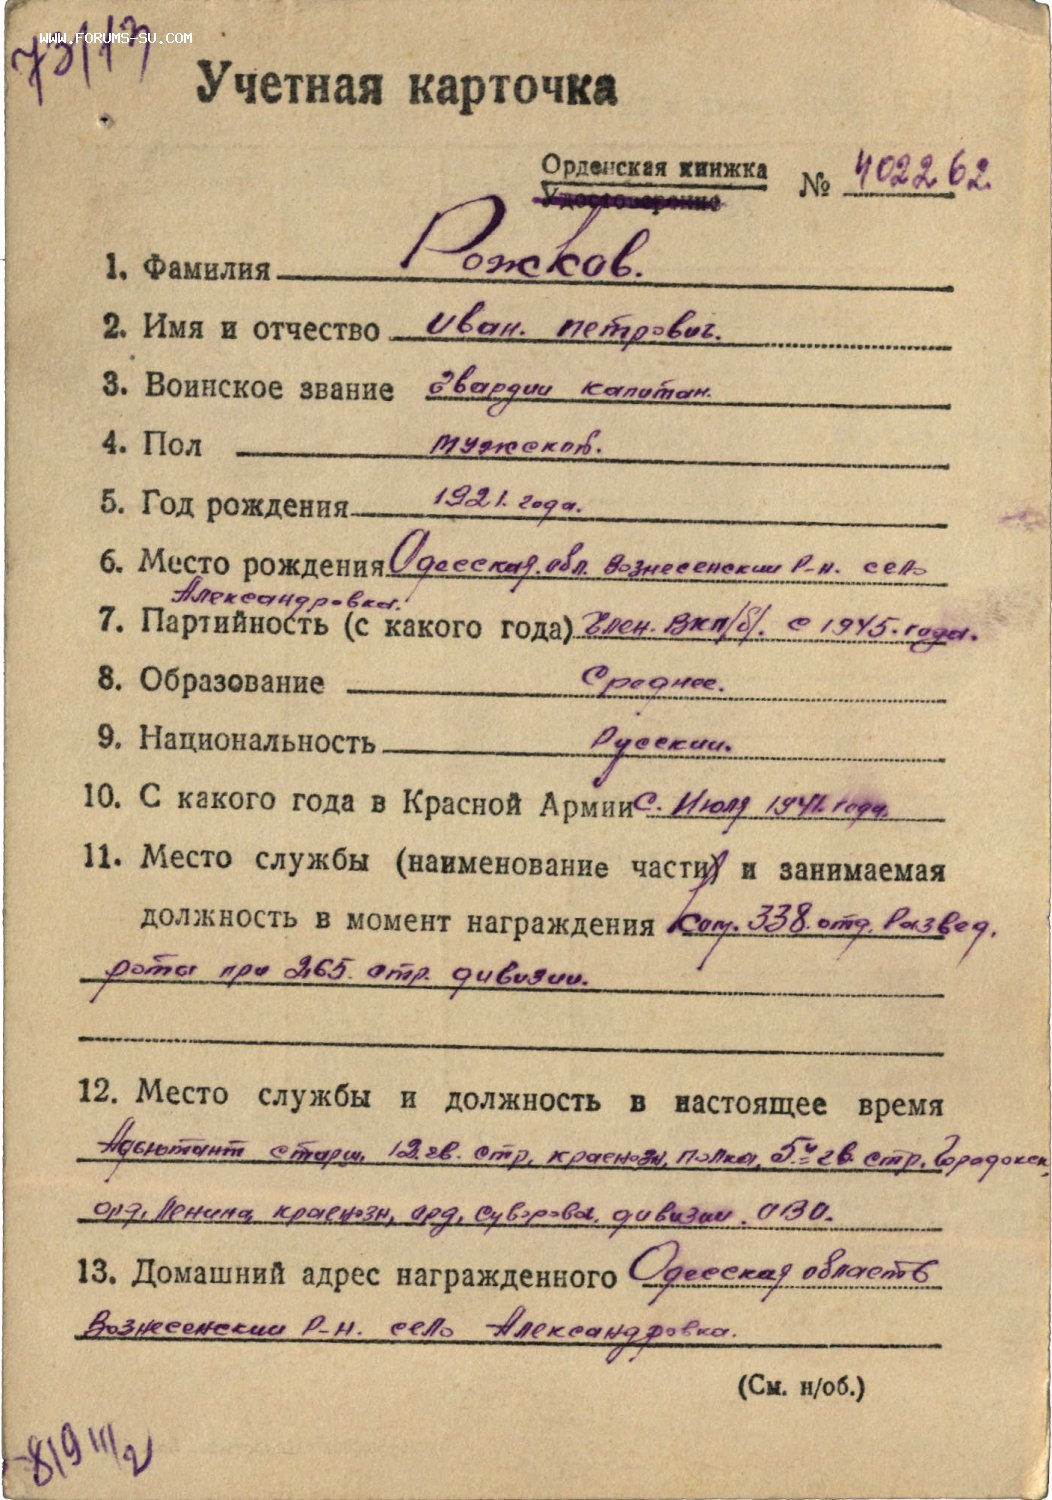 www.FORUMS-SU.COM
73/13
Учетная карточка
Орденская книжка
Удостоверение
№ 402262.
1. Фамилия Рожков.
2. Имя и отчество Иван. Петрович.
3. Воинское звание Гвардии капитан.
4. Пол мужской.
5. Год рождения 1921. года.
6. Место рождения Одесская. обл. Вознесенский р-н. село
Александровка.
7. Партийность (с какого года) Член. ВКП/б/. с 1945. года.
8. Образование Среднее.
9. Национальность Русский.
10. С какого года в Красной Армии С. Июля 1941. года.
11. Место службы (наименование части) и занимаемая
должность в момент награждения Ком. 338. отд. развед.
роты при 265. стр. дивизии.
12. Место службы и должность в настоящее время
Адьютант старш. 12. гв. стр. краснозн. полка, 5й гв. стр. Городокск.
орд. Ленина краснозн. орд. Суворова. дивизии. ОВО.
13. Домашний адрес награжденного Одесская область
Вознесенский р-н. село Александровка.
(См. н/об.)